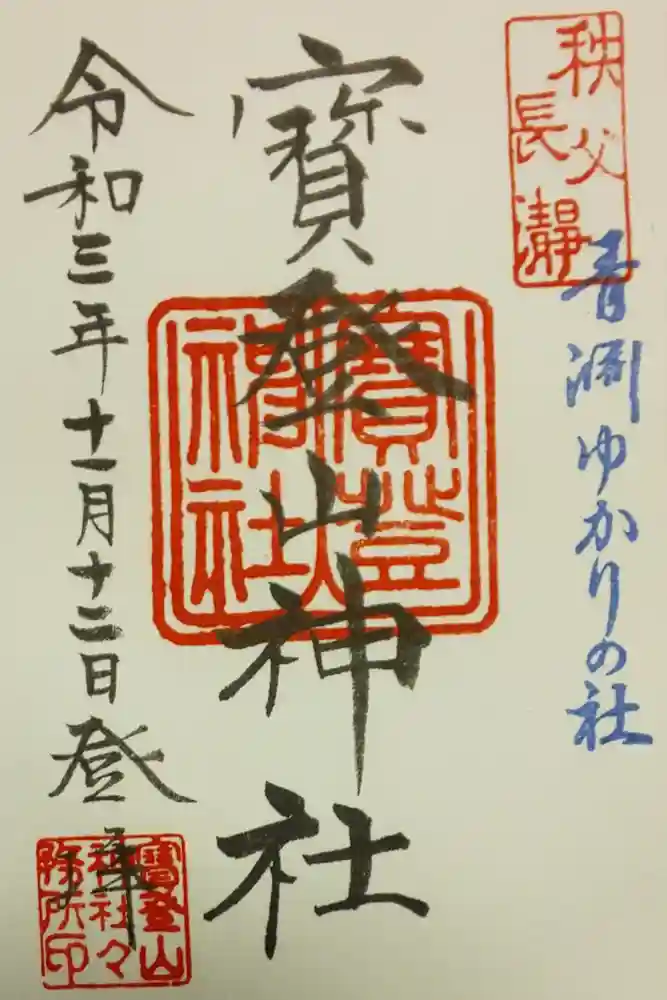 秩父
長瀞
青淵ゆかりの社
寳登山神社
寳登
山神社
令和三年十一月十二日登拝
寳登山
神社々
務所印